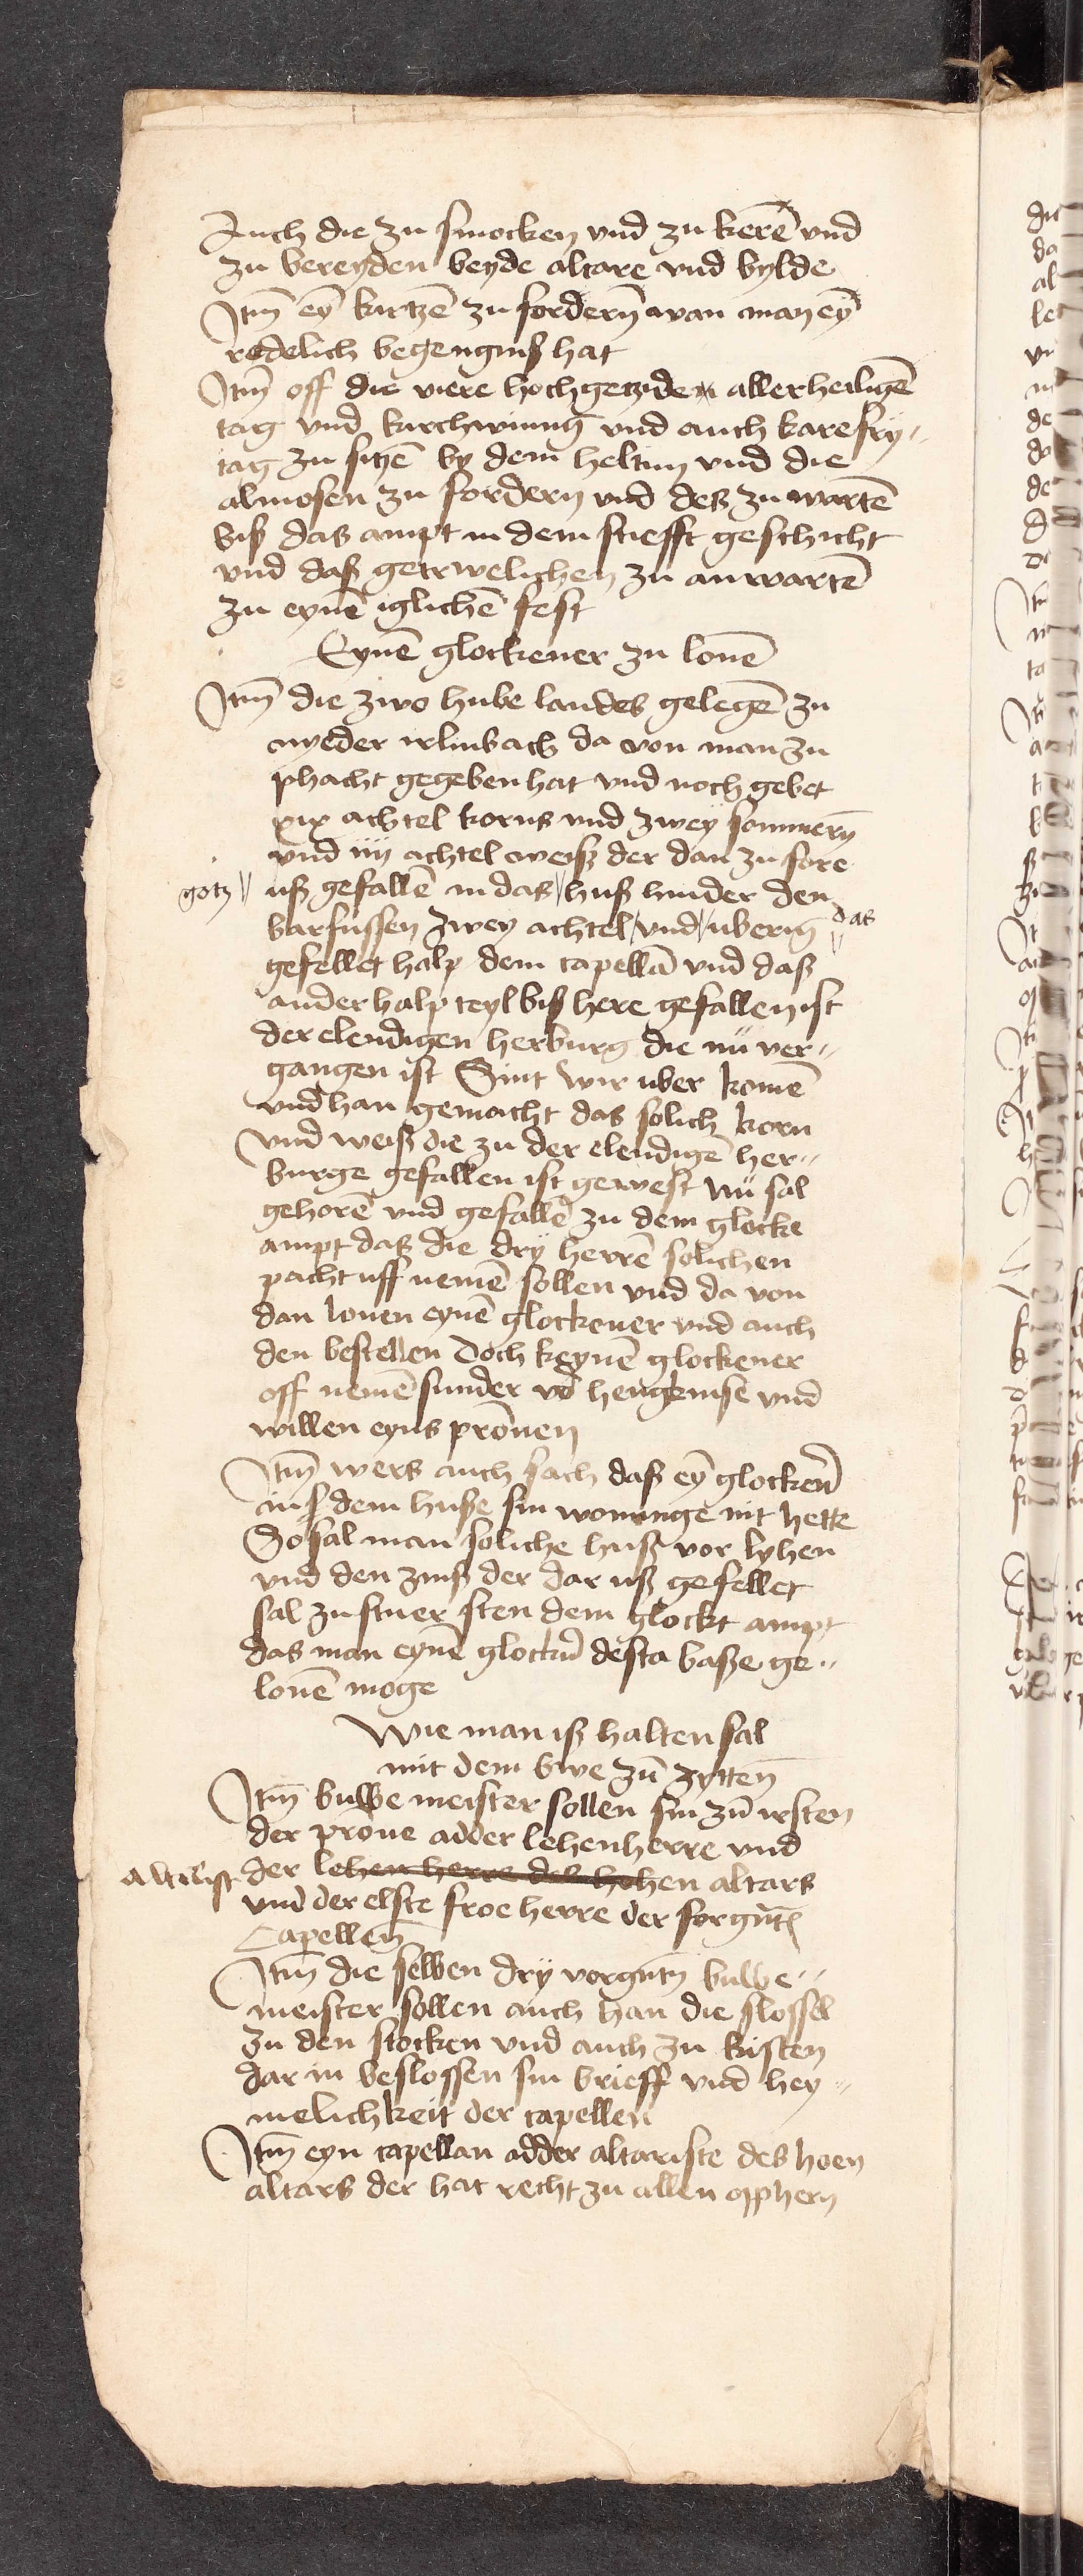 Auch die zu smocken vnd zu kerē vnd
zu bereyden beyde altare vnd bylde
Itm̄ eȳ kirtzē zu fordern̄ wan man eȳ
redelich begengniß hat
Itm̄ off die viere hochgetziden allerheiligē
tag vnd kirchwiung vnd auch karefry„
tag zu sitzē by dem heltum vnd die
almosen zu fordern vnd des zu wartē
biß das ampt in dem stiefft geschicht
vnd daß getrwelichen zu anwartē
zu eynē iglichē fest
Eynē glockener zu lonē
Itm̄ die zwo hube landes gelegē zu
nyeder irlinbach da von man zu
phacht gegeben hat vnd noch gebet
xix achtel korns vnd zwey sommern̄
vnd iiij achtel weiß der dan zu fore
gotz || uß gefallē in das || huß hinder den
barfussen zwey achtel / vnd / uberig das
gefellet halp dem capellā vnd daß
ander halp teyl biß here gefallen ist
der elendigen herburg die nū ver„
gangen ist Sint wir uber komē
vnd han gemacht das solich korn
vnd weiß die zu der elendigē her„
burge gefallen ist gewest nū sal
gehorē vnd gefallē zu dem glocke
ampt das die dry herrē solichen
pacht uff nemē sollen vnd da von
dan lonen eynē glockener vnd auch
den bestellen doch keynē glockener
off nemē sunder v'd hengknise vnd
willen eyns pronen
Itm̄ wers auch sach daß eȳ glocken̄
uß dem huße sin wonunge nit hette
So sal man soliche huß vor lyhen
vnd den zinß der dar uß gefellet
sal zu stuer sten dem glockt ampt
das man eynē glockn̄ desta baße ge„
lonē moge
Wie man iß halten sal
mit dem bwe zū zytten
Itm̄ buwe meister sollen sin zū irsten
der prone adder lehenherre vnd
altarist der lehen herre des hohen altars
vnd der elste froe herre der forgntē
Capellen̄
Itm̄ die selben dry vorgntn̄ buwe„
meister sollen auch han die slossel
zu den stocken vnd auch zu kisten
dar in beslossen sin brieff vnd hey„
melichkeit der capellen
Itm̄ eyn capellan adder altariste des hoen
altars der hat recht zu allen opphern